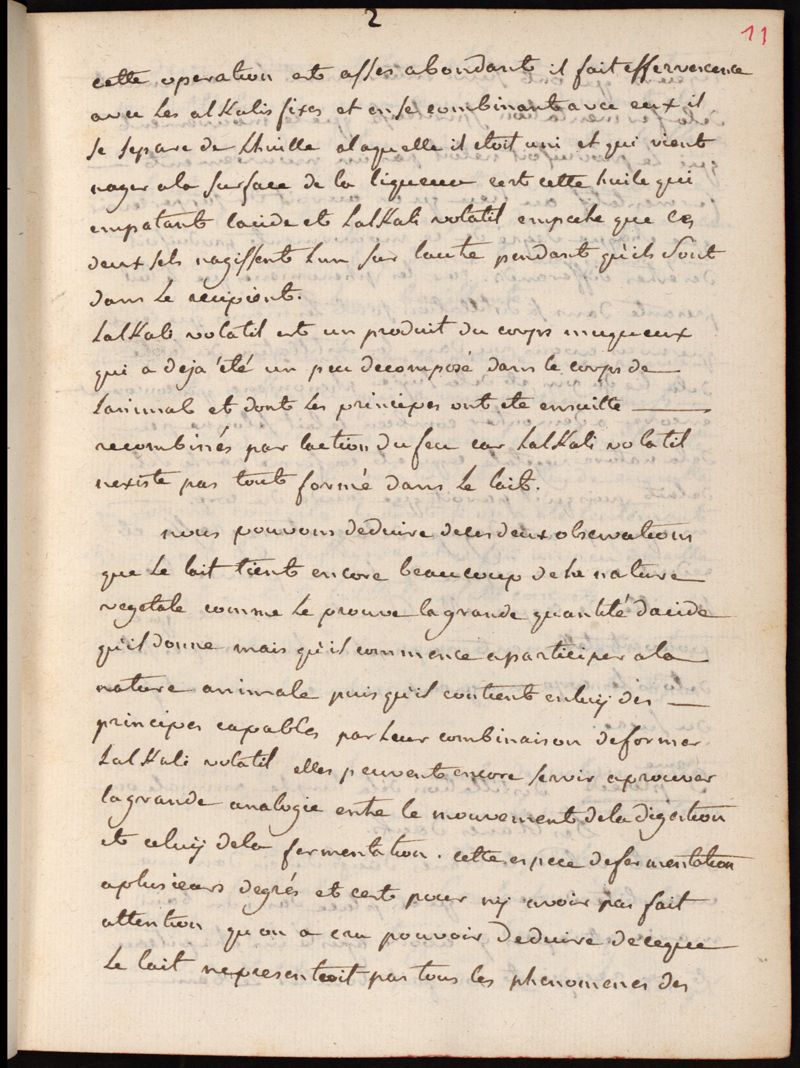 2
11
cette operation est asses abondant il fait effervescence
avec les alKalis fixes et en se combinant avec eux il
se separe de Lhuille alaquelle il etoit uni et qui vient
nager ala surface de la liqueur cest cette huile qui
empatant lacide et LalKali volatil empeche que ces
deux sels nagissent Lun sur lautre pendant qu'ils sont
dans Le recipient.
LalKali volatil est un produit du corps muqueux
qui a deja été un peu decomposé dans le corps de
Lanimal et dont Les principes ont ete ensuitte —
recombinés par laction du feu car LalKali volatil
nexiste pas tout formé dans Le lait.
nous pouvons deduire deces deux observations
que Le lait tient encore beaucoup dela nature
vegetale comme Le prouve la grande quantité dacide
qu'il donne mais qu'il commence aparticiper ala
nature animale puis qu'il contient enluy des —
principes capables par Leur combinaison deformer
LalKali volatil elles peuvent encore servir aprouver
lagrande analogie entre le mouvement dela digestion
et celuy dela fermentation. cette espece defermentation
aplusieurs degrés et cest pour ny avoir pas fait
attention qu'on a cru pouvoir deduire deceque
Le lait nepresentoit pas tous les phenomenes des